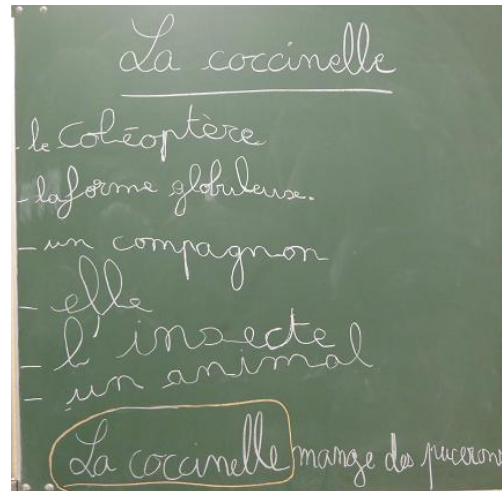 La coccinelle
- le coléoptère
- la forme globuleux.
- un compagnon
- elle
- l'insecte
- un animal
La coccinelle mange des pucerons